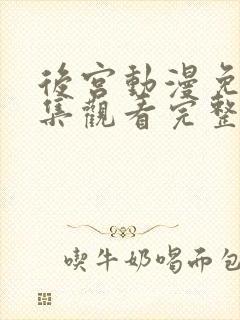 後宮動漫免
集觀看完整
喫牛奶喝面包